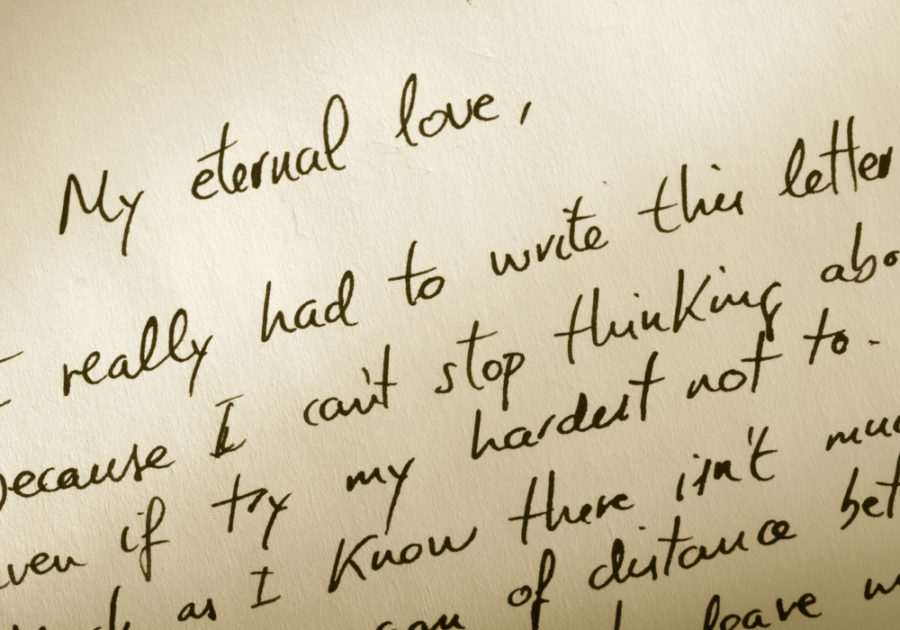 My eternal love,
I really had to write this letter
because I can't stop thinking abo
even if try my hardest not to.
as I know there isn't muc
of distance bet
leave